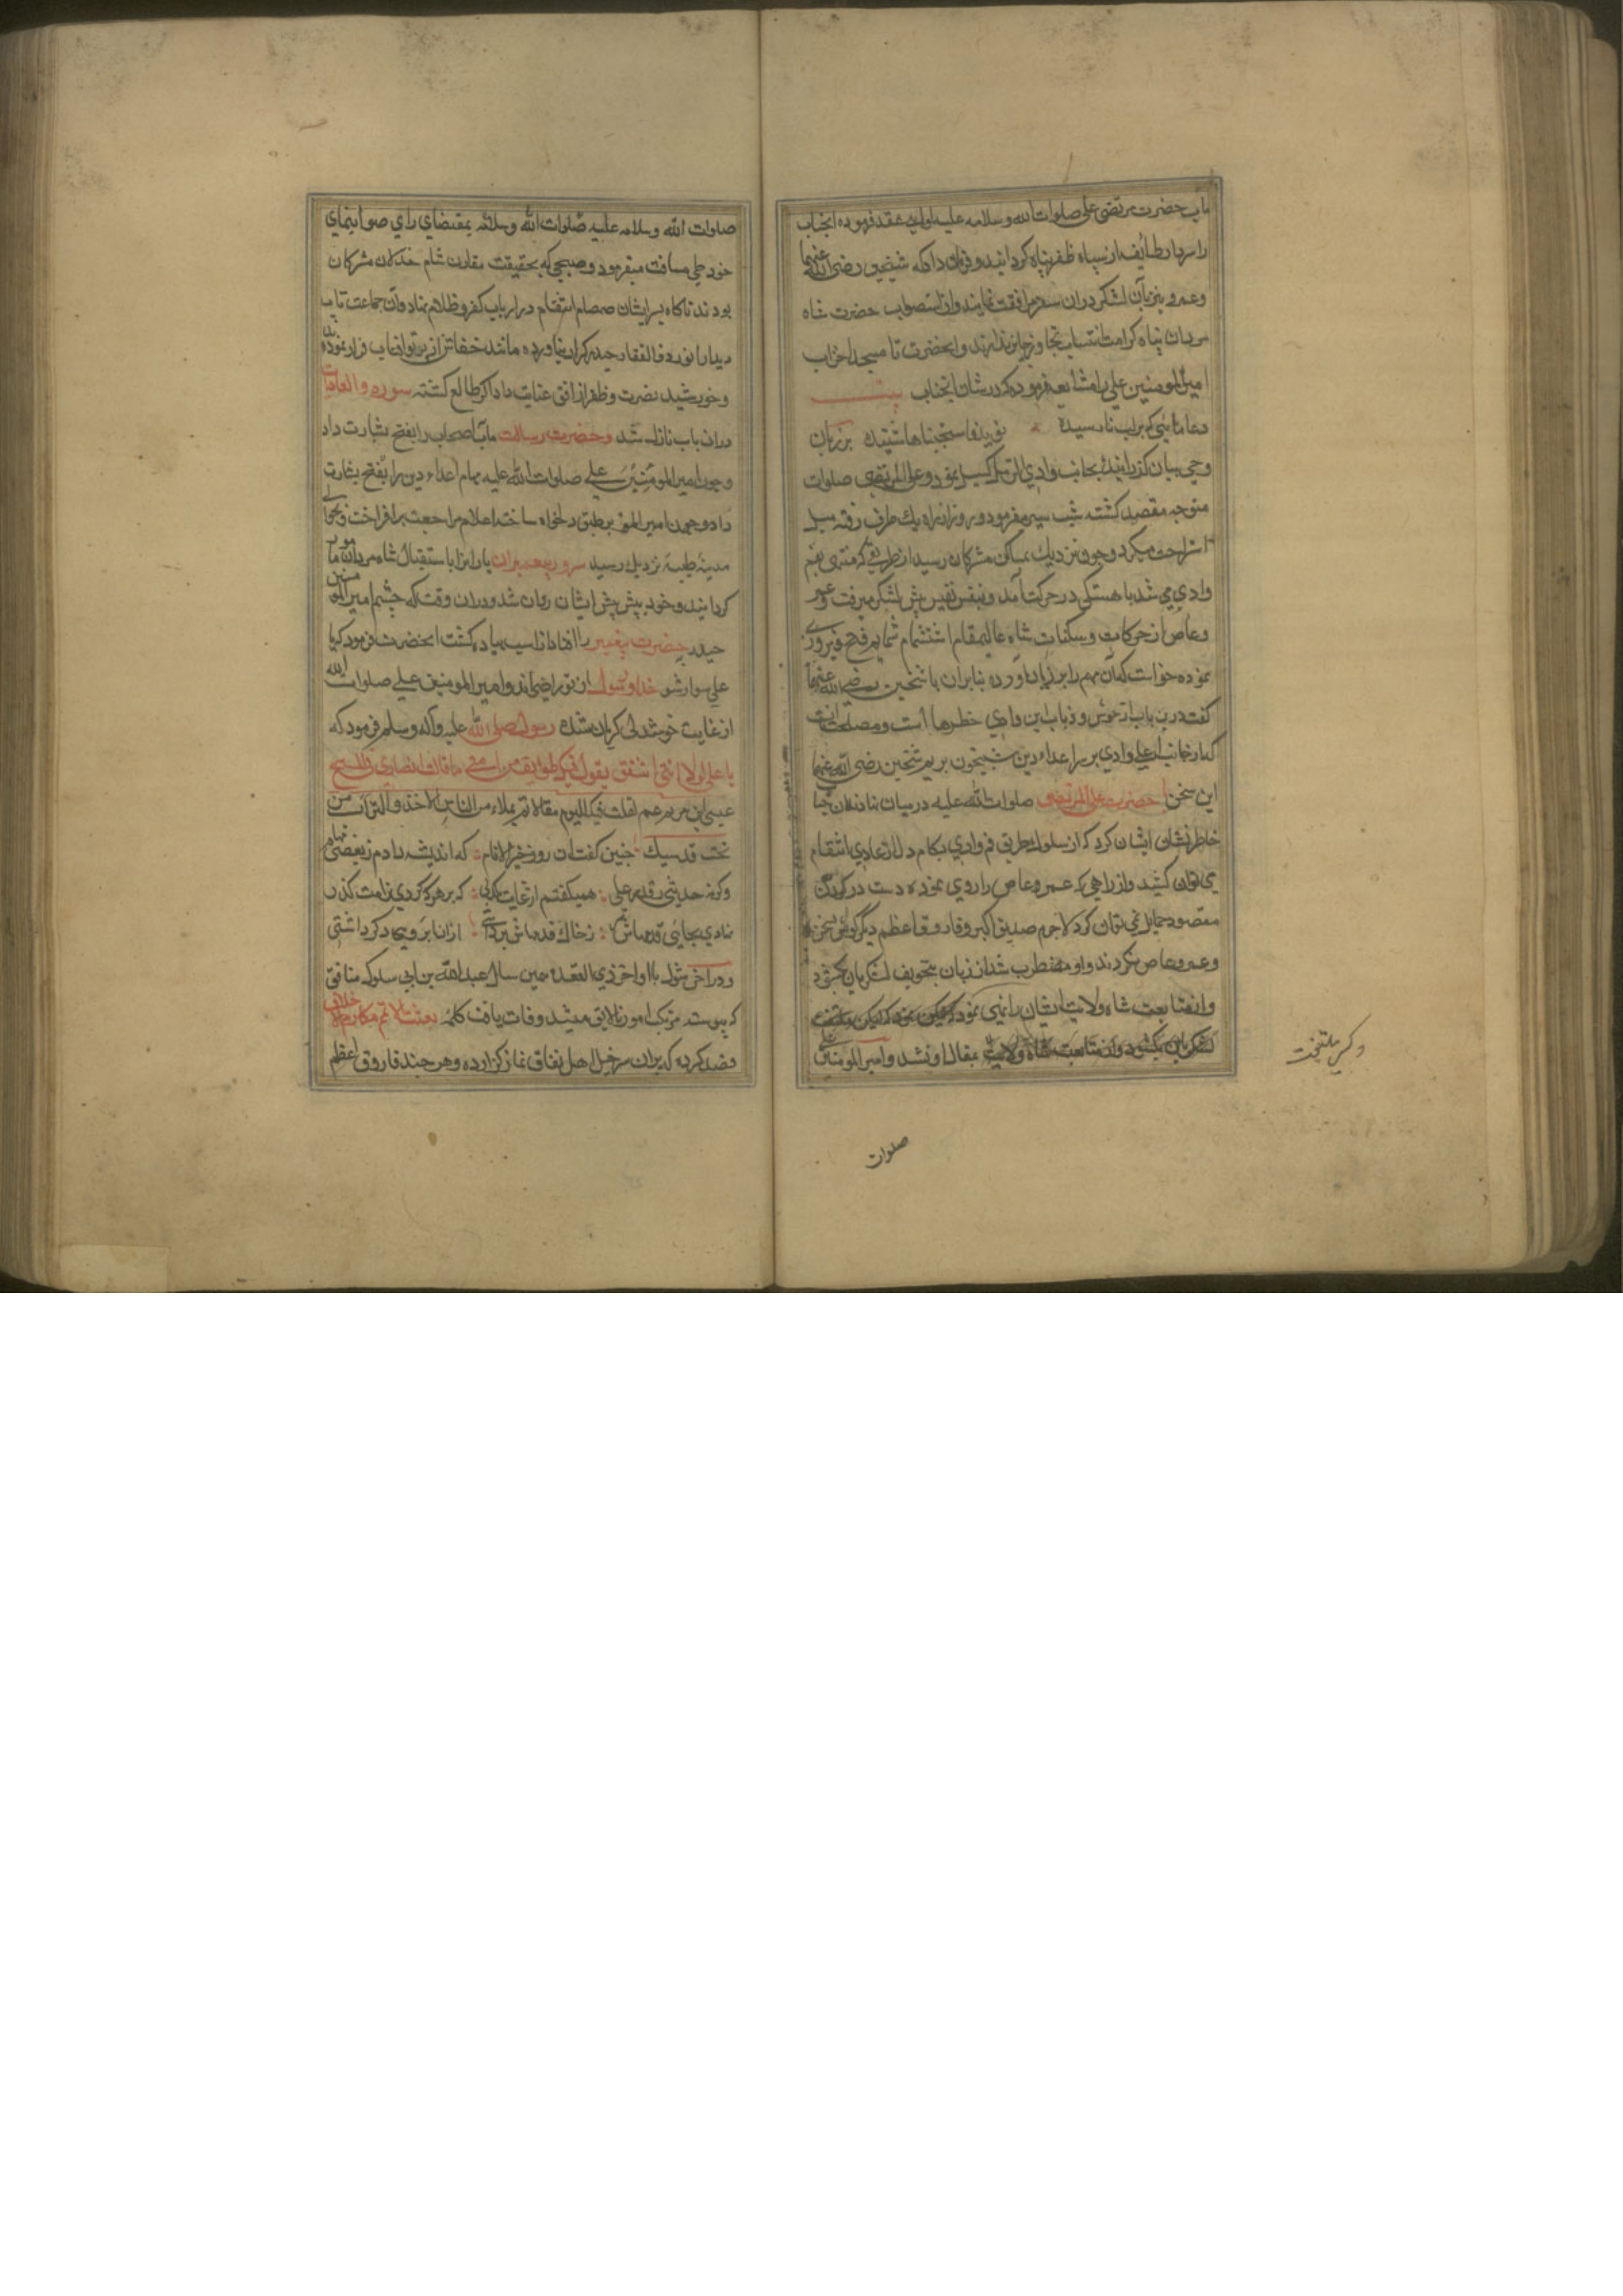 مآب حضرت مرتضی علی صلوات الله وسلامه علیه لوایی عقد فرموده آنجناب
را سردار طایفه از سپاه ظفرپناه کردانید و فرمان داد که شیخین رضی الله عنهما
وعمرو نیز بآن لشکر دران سفر مرافقت نمایند و از استصواب حضرت شاه
مردان پناه کرامت انتساب تجاوز جایز ندارند و انحضرت تا مسجد احزاب
امیرالمومنین علی را مشایعه فرموده که در شان آنجناب بیت
دعاهائی که بر لب نارسیده نوید فاستجبناها شنیده بر زبان
وحی بیان کذرانیده بجانب وادی الرمل کسیل نمود و علی المرتضی صلوات
متوجه مقصد کشته شب سیر میفرمود و روز از راه یک طرف رفته
استراحت میکرد و چون نزدیک بمساکن مشرکان رسید از طریقی که منتهی بفم
وادی می شد باهستکی در حرکت آمد و بنفس نفیس پیش لشکر میرفت و عمرو
وعاص از حرکات و سکنات شاه عالیمقام استشمام شمایم فتح و فیروزی
نموده خواست که آن مهم را بر زیان آورده بنابران با شیخین رضی الله عنهما
کفت درین باب از حوش و ذباب این وادی خطرها است و مصلحت انست
که از جانب اعلی وادی بر سر اعداء دین شبیخون بریم شیخین رضی الله عنهما
این سخن با حضرت علی المرتضی صلوات الله علیه درمیان نهادند آن جناب
خاطرنشان ایشان کرد که از سلوک طریق فم وادی بکام دل از اعادی انتقام
می توان کشید و از راهی که عمرو عاص را روی نموده دست در کردن
مقصود حمایل نمی توان کرد لاجرم صدیق اکبر و فاروق اعظم دیگر کوش بسخن
وعمرو عاص نکردند و او مضطرب شد از زبان بتخویف لشکریان بکشود
واز متابعت شاه ولایت ایشان را نهی نمود لیکن
لشکریان بکشود و از متابعت شاه ولایت بمقال او نشد و امیرالمومنین علی
وکس ملتفت
صلوات
صلوات الله وسلامه علیه صلوات الله وسلامه بمقتضای رای صواب نمای
خود طی مسافت میفرمود و صبحی که بحقیقت مقارن شام خذلان مشرکان
بود ناکاه بر ایشان صمصام انتقام در ارباب کفر و ظلام نهاد و آن جماعت تاب
دیدار انور ذوالفقار حیدر کرار نیاورده مانند خفاش از پرتو آفتاب فرار نمودند
وخورشید نصرت و ظفر از افق عنایت داداکر طالع کشته سوره والعادیات
دران باب نازل شد وحضرت رسالت مآب اصحاب را بفتح بشارت داد
وچون امیرالمومنین علی صلوات الله علیه مهام اعداء دین را بفتح بشارت
داد و چون امیرالمو بر طبق دلخواه ساخته اعلام مراجعت برافراخت و بحوالی
مدینه طیبه نزدیک رسید سرور پیغمبران یاران را باستقبال شاه مردان مامور
کردانید و خود پیش پیش ایشان روان شد و دران وقت که چشم امیرالمومنین
حیدر بر حضرت پیغمبر افتاد از اسب پیاده کشت انحضرت فرمود که یا
علی سوار شو خدا و رسول از تو راضی اند و امیرالمومنین علی صلوات الله
از غایت خوشدلی کریان شده رسول صلی الله علیه وآله وسلم فرمود که
یا علی لولا اننی اشفق یقول فیک طوایف من امتی ما قالت النصاری فی المسیح
عیسی ابن مریم عم لقلت فیک الیوم مقالا لا تمر بملاء من الناس الا اخذوا التراب من
تحت قدمیک چنین کفت ان روز خیرالانام که اندیشه دادم ز بعضی
وکرنه حدیثی ز قدر علی همیکفتم از غایت یکدلی که بر هر که کردی بذلت کذر
نهادی بجائی قدمهاش سر ز خاک قدمهاش برداشتی از ان ابروی دکر داشتی
و در آخر شوال یا اواخر ذی القعده همین سال عبدالله بن ابی سلول منافق
که پیوسته مرتکب امور نالایق میشد وفات یافت کلمه بعثت لاتمم مکارم الاخلاق
قصد کرده که بران سرخیل اهل نفاق نماز کزارده و هر چند فاروق اعظم